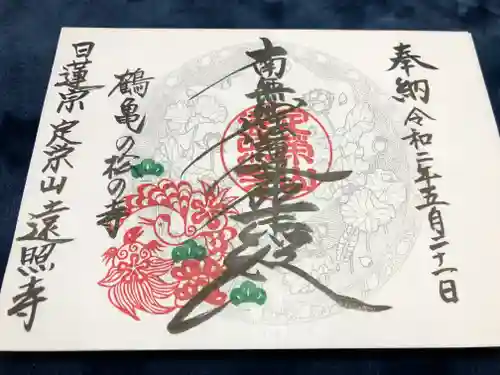 奉納 令和二年五月二十一日
南無妙法蓮華経
鶴亀の松の寺
日蓮宗 定栄山 遠照寺